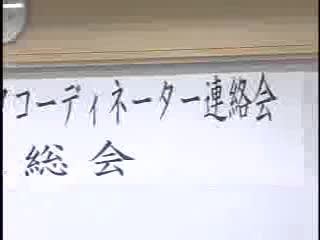 コーディネーター連絡会
総会